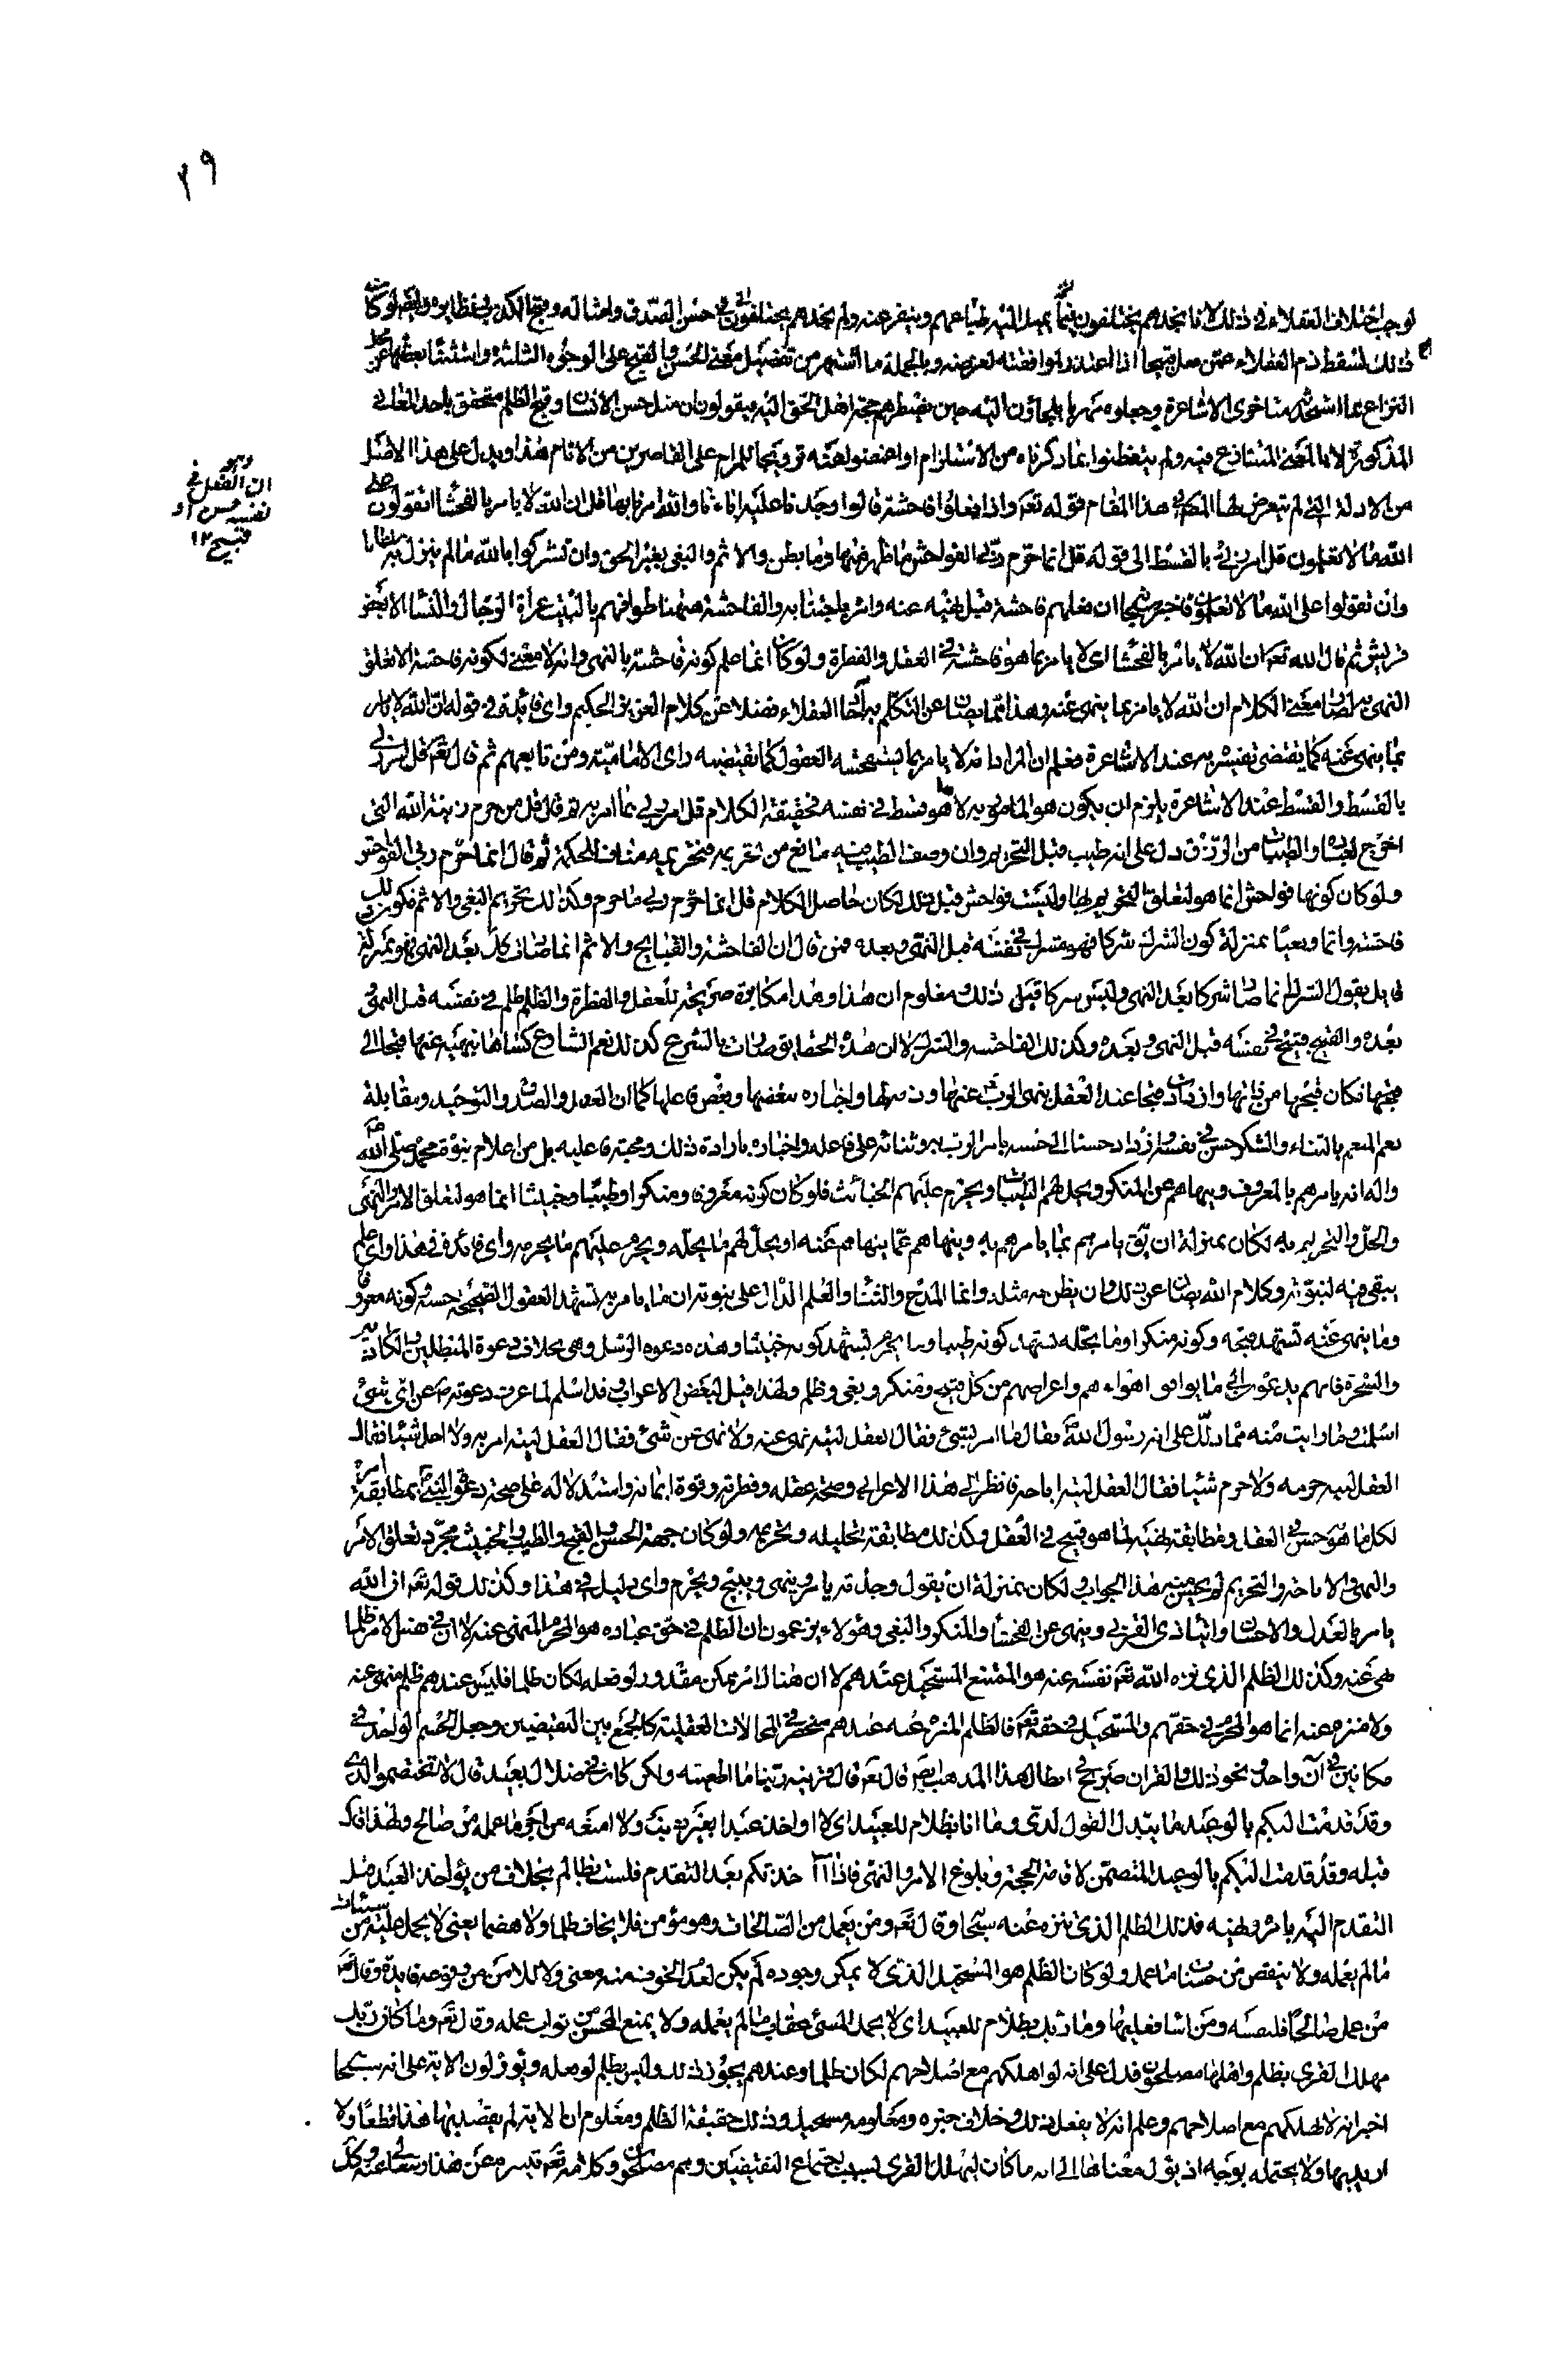 ٢٩
لوجب اختلاف العقلاء في ذلك لانا نجدهم يختلفون فيما يميل اليه طباعهم وينفر عنه ولم نجدهم يختلفون في حسن الصدق وامثاله وقبح الكذب ونظايره وايضا لو كان
ذلك لسقط ذم العقلاء عمن فعل قبيحا اذا اعتذر بموافقته لغرضه وبالجملة ما اشتهر من تفصيل معنى الحسن والقبح على الوجوه الثلثة واستثناء بعضها عن محل
النزاع مما استحدثه متاخروا الاشاعرة وجعلوه مهربا يلجاؤن اليه حين يضطرهم حجة اهل الحق اليه فيقولون ان مثل حسن الاحسان وقبح الظلم متحقق باحد المعاني
المذكورة لا بالمعنى المتنازع فيه ولم يتفطنوا بما ذكرناه من الاستلزام او اغمضوا عنه ترويجا للمرام على القاصرين من الانام هذا ويدل على هذا الاصل
وهو ان الفعل في نفسه حسن او قبيح ١٢
من الادلة التي لم يتعرض لها المص في هذا المقام قوله تع‍ واذا فعلوا فاحشة قالوا وجدنا عليها اباءنا والله امرنا بها قل ان الله لا يامر بالفحشا اتقولون على
الله ما لا تعلمون قل امر ربي بالقسط الى قوله قل انما حرم ربي الفواحش ما ظهر منها وما بطن والاثم والبغي بغير الحق وان تشركوا بالله ما لم ينزل به سلطانا
وان تقولوا على الله ما لا تعلمون فاخبر سبحانه ان فعلهم فاحشة قبل نهيه عنه وامر باجتنابه والفاحشة ههنا طوافهم بالبيت عراة الرجال والنساء الا بعض
قريش ثم قال الله تع‍ ان الله لا يامر بالفحشا اي لا يامر بما هو فاحشة في العقل والفطرة ولو كان انما علم كونه فاحشة بالنهي وانه لا معنى لكونه فاحشة الا تعلق
النهي به لصار معنى الكلام ان الله لا يامر بما ينهى عنه وهذا مما يصان عن التكلم به احاد العقلاء فضلا عن كلام العزيز الحكيم واي فائدة في قوله ان الله لا يامر
بما ينهى عنه كما يقتضي تفسيره عند الاشاعرة فعلم ان المراد انه لا يامر بما يستفحشه العقول كما تقتضيه راى الامامية ومن تابعهم ثم قال تع‍ قل امر ربي
بالقسط والقسط عند الاشاعرة يلزم ان يكون هو المامور به لا ما هو قسط في نفسه فحقيقة الكلام قل امر ربي بما امر به ثم قال قل من حرم زينة الله التي
اخرج لعباده والطيبات من الرزق دل على انه طيب قبل التحريم وان وصف الطيب فيه مانع من تحريمه فتحريمه مناف للحكمة ثم قال انما حرم ربي الفواحش
ولو كان كونها فواحش انما هو لتعلق التحريم بها وليست فواحش قبل ذلك لكان حاصل الكلام قل انما حرم ربي ما حرم وكذلك تحريم البغي والاثم فكون ذلك
فاحشة واثما وبغيا بمنزلة كون الشرك شركا فهو شرك في نفسه قبل النهي وبعده فمن قال ان الفاحشة والقبايح والاثم انما صار كذلك بعد النهي فهو بمنزلة
قايل يقول الشرك انما صار شركا بعد النهي وليس شركا قبل ذلك ومعلوم ان هذا وهذا مكابرة صريحة للعقل والفطرة والظلم ظلم في نفسه قبل النهي و
بعده والقبيح قبيح في نفسه قبل النهي وبعده وكذلك الفاحشة والشرك لا ان هذه الحقايق صارت بالشرع كذلك نعم الشارع كساها بنهيه عنها قبحا الى
قبحها فكان قبحها من ذاتها وازدادت قبحا عند العقل بنهي الرب عنها وذمه لها واخباره ببغضها وبغض فاعلها كما ان العدل والصدق والتوحيد ومقابلة
نعم المنعم بالثناء والشكر حسن في نفسه وازداد حسنا الى حسنه بامر الرب به وثنائه على فاعله واخباره بارادة ذلك ومحبة فاعليه بل من اعلام نبوة محمد صلى الله عليه
واله انه يامرهم بالمعروف وينهاهم عن المنكر ويحل لهم الطيبات ويحرم عليهم الخبائث فلو كان كونه معروفا ومنكرا وطيبا وخبيثا انما هو لتعلق الامر والنهي
والحل والتحريم به لكان بمنزلة ان يق يامرهم بما يامرهم به وينهاهم عما ينهاهم عنه او يحل لهم ما يحله ويحرم عليهم ما يحرمه واي فائدة في هذا واي علم
يبقى فيه لنبوته وكلام الله يصان عن ذلك وان يظن به مثله وانما المدح والثناء والعلم الدال على نبوته ان ما يامر به تشهد العقول الصحيحة حسنه وكونه معروفا
وما ينهى عنه تشهد قبحه وكونه منكرا وما يحله تشهد كونه طيبا وما يحرمه تشهد كونه خبيثا وهذه دعوة الرسل وهي بخلاف دعوة المتظلمين والكاذبين
والسحرة فانهم يدعون الى ما يوافق اهواءهم واغراضهم من كل قبيح ومنكر وبغي وظلم ولهذا قيل لبعض الاعراب وقد اسلم لما عرف دعوته ص عن اي شئ
اسلمت وما رايت منه مما دلك على انه رسول الله فقال ما امر بشئ فقال العقل ليته نهى عنه ولا نهى عن شئ فقال العقل ليته امر به ولا احل شيئا فقال
العقل ليته حرمه ولا حرم شيئا فقال العقل ليته اباحه فانظر الى هذا الاعرابي وصحة عقله وفطرته وقوة ايمانه واستدلاله على صحة دعوى النبي بمطابقة امره
لكل ما هو حسن في العقل ومطابقة نهيه لما هو قبيح في العقل وكذلك مطابقة تحليله وتحريمه ولو كان جهة الحسن والقبح والطيب والخبيث مجرد تعلق الامر
والنهي والاباحة والتحريم لم يحسن منه هذا الجواب ولكان بمنزلة ان يقول وجدته يامر وينهى ويبيح ويحرم واي دليل في هذا وكذلك قوله تع‍ ان الله
يامر بالعدل والاحسان وايتاء ذي القربى وينهى عن الفحشاء والمنكر والبغي وهؤلاء يزعمون ان الظلم في حق عباده هو المحرم المنهي عنه لا ان في نفس الامر ظلما
نهى عنه وكذلك الظلم الذي نزه الله تع‍ نفسه عنه هو الممتنع المستحيل عندهم لا ان هناك امر ممكن مقدور لو فعله لكان ظلما فليس عندهم ظلم منهي عنه
ولا منزه عنه انما هو المحرم في حقهم والمستحيل في حقه تع‍ فالظلم المنزه عنه عندهم منحصر في المحالات العقلية كالجمع بين النقيضين وجعل الجسم الواحد في
مكانين في آن واحد ونحو ذلك والقران صريح في ابطال هذا المذهب ايضا قال تع‍ قال قرينه ربنا ما اطغيته ولكن كان في ضلال بعيد قال لا تختصموا لدي
وقد قدمت اليكم بالوعيد ما يبدل القول لدي وما انا بظلام للعبيد اي لا اواخذ عبدا بغير ذنب ولا امنعه من اجر ما عمله من صالح ولهذا قال
قبله وقد قدمت اليكم بالوعيد المتضمن لاقامة الحجة وبلوغ الامر والنهي فاذا آخذتكم بعد التقدم فلست بظالم بخلاف من يؤاخذ العبد قبل
التقدم اليه بامره ونهيه فذلك الظلم الذي تنزه عنه سبحانه وقال تع‍ ومن يعمل من الصالحات وهو مؤمن فلا يخاف ظلما ولا هضما يعني لا يحمل عليه من سيئات
ما لم يعمله ولا ينقص من حسنات ما عمل ولو كان الظلم هو المستحيل الذي لا يمكن وجوده لم يكن لعدم الخوف منه معنى ولا للامن من وقوعه فايدة وقال تع‍
من عمل صالحا فلنفسه ومن اساء فعليها وما ربك بظلام للعبيد اي لا يحمل المسئ عقاب ما لم يعمله ولا يمنع المحسن من ثواب عمله وقال تع‍ وما كان ربك
مهلك القرى بظلم واهلها مصلحون فدل على انه لو اهلكهم مع اصلاحهم لكان ظلما وعندهم يجوز ذلك وليس بظلم لو فعله ويؤولون الاية على انه سبحانه
اخبر انه لا يهلكهم مع اصلاحهم وعلم انه لا يفعل ذلك وخلاف خبره ومعلومه مستحيل وذلك حقيقة الظلم ومعلوم ان الاية لم يقصد بها هذا قطعا ولا
اريد بها ولا يحتمله بوجه اذ يؤل معناها الى انه ما كان ليهلك القرى بسبب اجتماع النقيضين وهم مصلحون وكلامه تع‍ يتنزه عن هذا ويتعالى عنه وكل